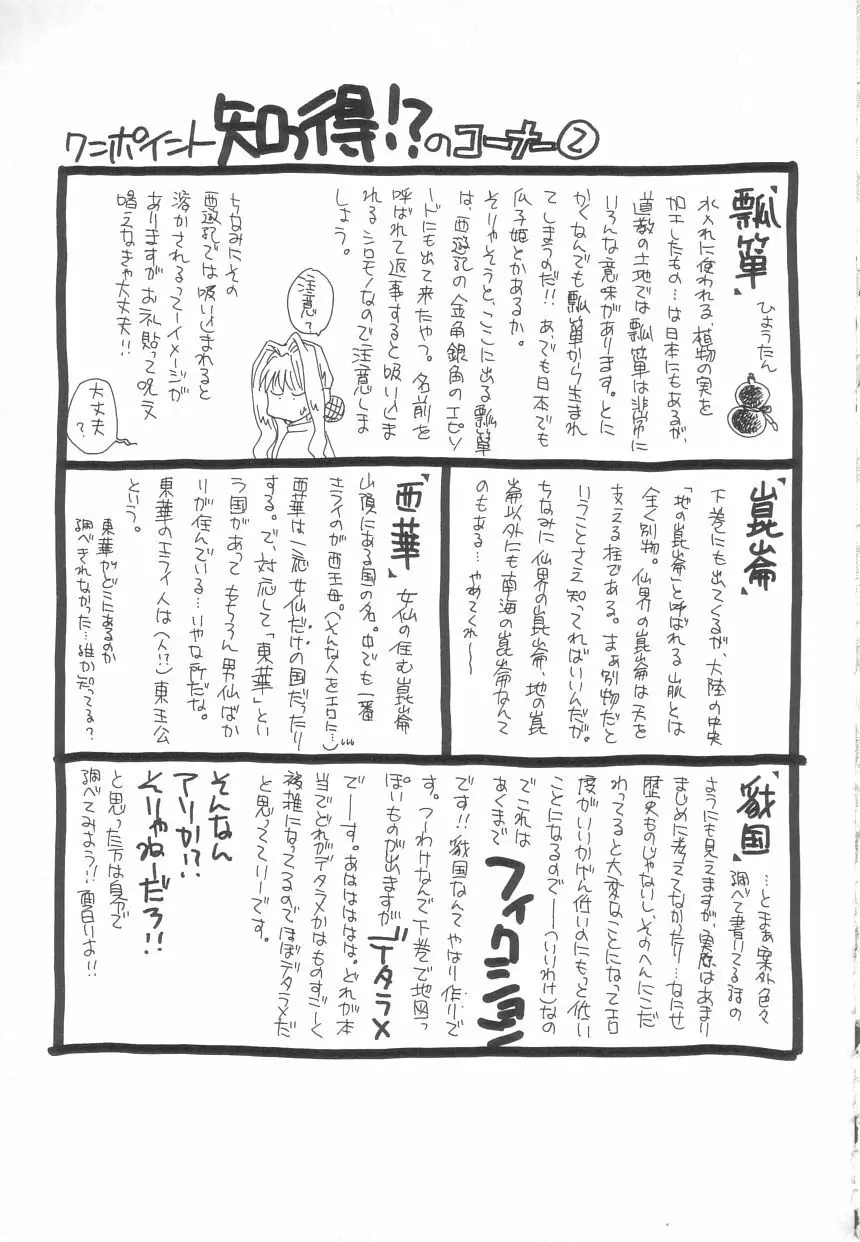 ワンポイント知っ得!?のコーナー②
『瓢箪』
ひょうたん
水入れに使われる、植物の実を
加工したもの…は日本にもあるが、
道教の土地では瓢箪は非常に
いろんな意味があります。とに
かくなんでも瓢箪から生まれ
てしまうのだ!!あ、でも日本でも
瓜子姫とかあるか。
そりゃそうと、ここに出る瓢箪
は、西遊記の金角銀角のエピソ
ードにも出て来たやつ。名前を
呼ばれて返事すると吸い込ま
れるシロモノなので注意しま
しょう。
注意?
ちなみにその
西遊記では吸い込まれると
溶かされるってーイメージが
ありますがお札貼って呪文
唱えなきゃ大丈夫!!
大丈夫?
『崑崙』
下巻にも出てくるが、大陸の中央
「地の崑崙」と呼ばれる山脈とは
全く別物。仙界の崑崙は天を
支える柱である。まぁ別物だと
いうことさえ知ってればいいんだが。
ちなみに仙界の崑崙、地の崑
崙以外にも南海の崑崙なんて
のもある…やめてくれ〜〜
『西華』
女仙の住む崑崙
山頂にある国の名。中でも一番
エライのが西王母。(そんな人をエロに…)
西華は一応女仙だけの国だったり
する。で、対応して「東華」とい
う国があってももちろん男仙ばか
りが住んでいる…いやな所だな。
東華のエライ人は(人!?)東王公
という。
東華がどこにあるのか
調べきれなかった…誰か知ってる?
国』
…とまぁ案外色々
調べて書いてる話の
ようにも見えますが、実際はあまり
まじめに考えてなかったり…なにせ
歴史ものじゃないし、そのへんにこだ
わってると大変なことになってエロ
度がいいかげん低いのにもっと低い
ことになるので──(いいわけ)なの
でこれは
あくまで
フィクション
です!!国なんてやはり作りで
す。つーわけなんで下巻で地図っ
ぽいものが出ますが『デタラメ』
でーす。あはははは。どれが本
当でどれがデタラメかはものすごーく
複雑になってるのでほぼデタラメだ
と思ってていーです。
そんなん
アリか!?
そりゃねーだろ!!
と思った方は自分で
調べてみよう!!面白いよ!!